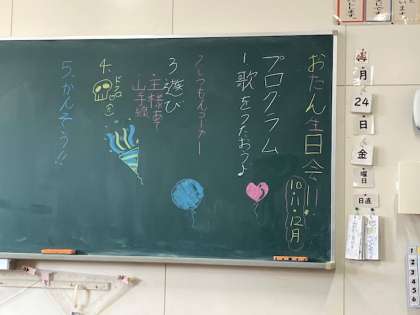 おたん生日会!!
10、11、12月
プログラム
1 歌をうたおう♪
2 しつもんコーナー
3 遊び
・王様あて
・山手線
4.
5.かんそう!!
月
24
日
金
曜日
日直
1
2
3
4
5
6